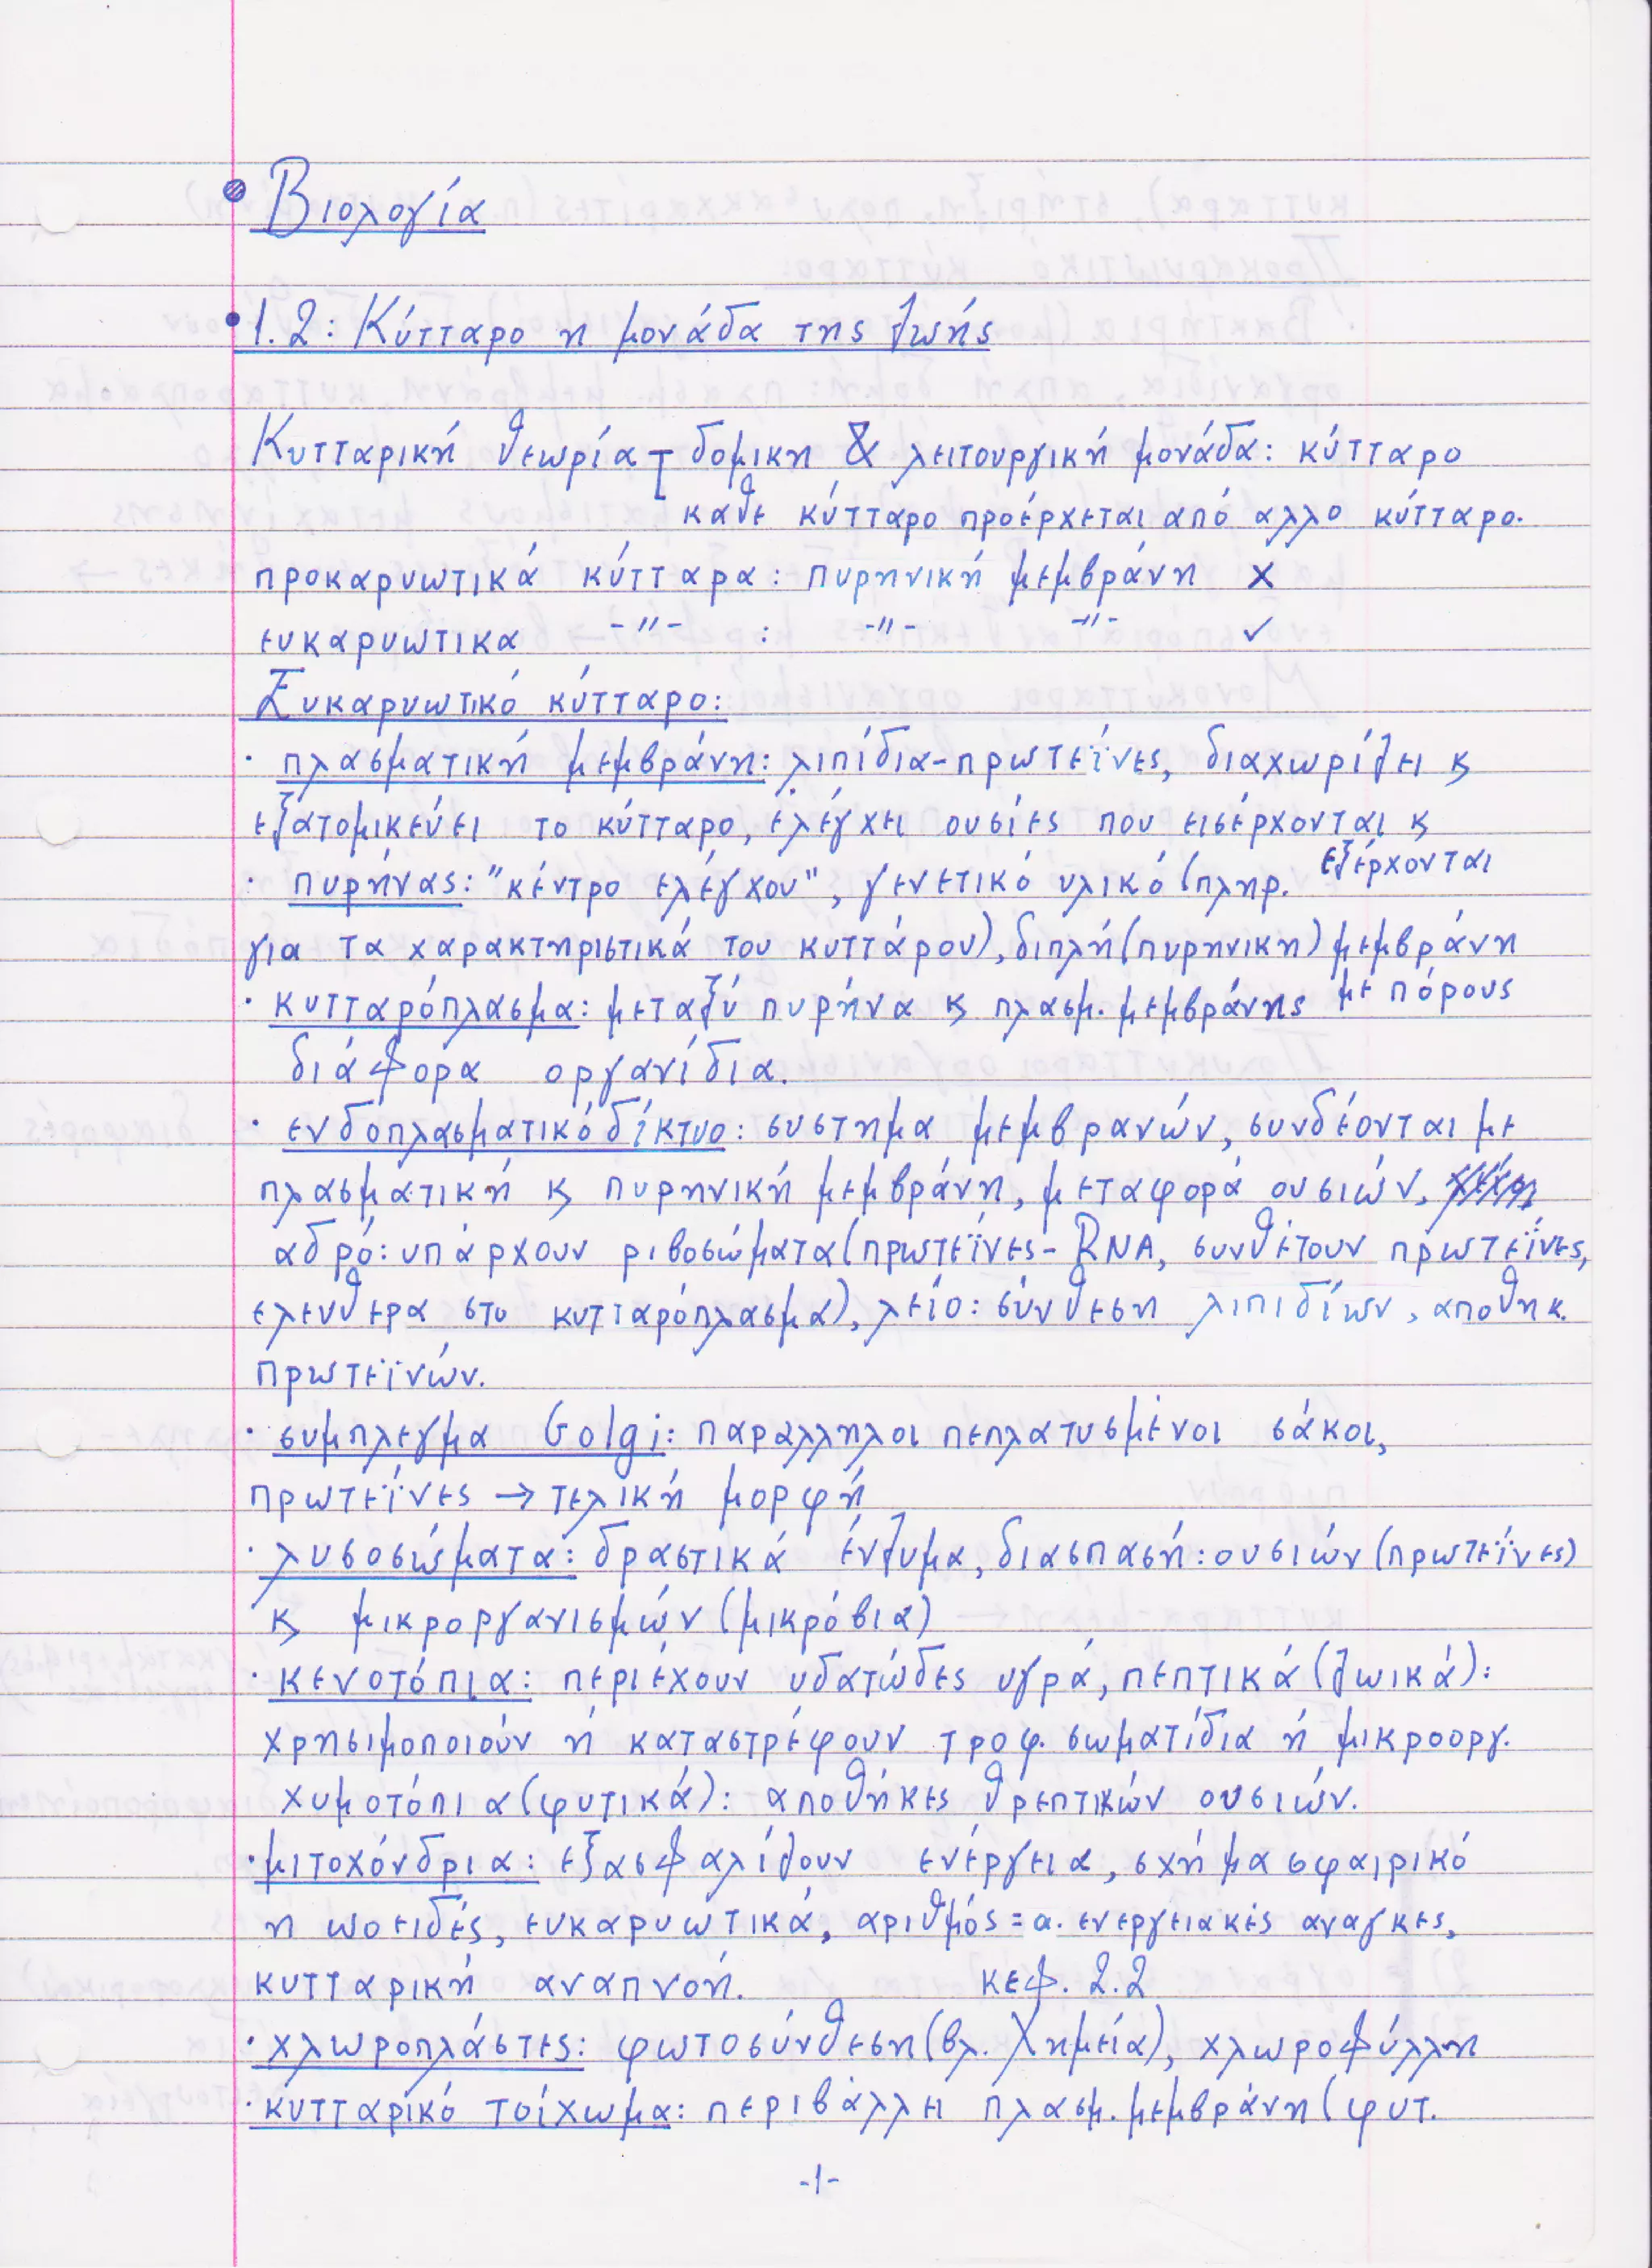 Βιολογία
1.2: Κύτταρο η μονάδα της ζωής
Κυτταρική θεωρία δομικη & λειτουργική μονάδα: κύτταρο
καθε κύτταρο προέρχεται από αλλο κύτταρο.
προκαρυωτικά κύτταρα: πυρηνική μεμβράνη X
ευκαρυωτικα -"- : -"- -"- ✓
Ευκαρυωτικό κύτταρο:
· πλασματική μεμβράνη: λιπίδια-πρωτεΐνες, διαχωρίζει κ
εξατομικεύει το κύτταρο, ελέγχει ουσίες που εισέρχονται κ
εξέρχονται
· πυρήνας: "κέντρο ελέγχου", γενετικό υλικό (πληρ.
για τα χαρακτηριστικά του κυττάρου), διπλή (πυρηνικη) μεμβράνη
με πόρους
· κυτταρόπλασμα: μεταξύ πυρήνα κ πλασμ. μεμβράνης
διάφορα οργανίδια.
· ενδοπλασματικό δίκτυο: συστημα μεμβρανών, συνδέονται με
πλασματική κ πυρηνική μεμβράνη, μεταφορά ουσιών,
αδρό: υπάρχουν ριβοσώματα (πρωτεΐνες-RNA, συνθέτουν πρωτεΐνες,
ελευθερα στο κυτταρόπλασμα), λείο: σύνθεση λιπιδίων, αποθηκ.
πρωτεϊνών.
· συμπλεγμα Golgi: παραλληλοι πεπλατυσμένοι σάκοι,
πρωτεΐνες → τελική μορφή
· λυσοσώματα: δραστικά ένζυμα, διασπασή: ουσιών (πρωτεΐνες)
κ μικροργανισμών (μικρόβια)
· κενοτόπια: περιέχουν υδατώδες υγρά, πεπτικά (ζωικά):
χρησιμοποιούν ή καταστρέφουν τροφ. σωματίδια ή μικροοργ.
χυμοτόπια (φυτικά): αποθήκες θρεπτικών ουσιών.
· μιτοχόνδρια: εξασφαλίζουν ενέργεια, σχήμα σφαιρικό
η ωοειδές, ευκαρυωτικά, αριθμός = α. ενεργειακές αναγκες,
κυτταρική αναπνοή. κεφ. 2.2
· χλωροπλάστες: φωτοσύνθεση (βλ. Χημεία), χλωροφύλλη
· κυτταρικό τοίχωμα: περιβάλλει πλασμ. μεμβράνη (φυτ.
-1-